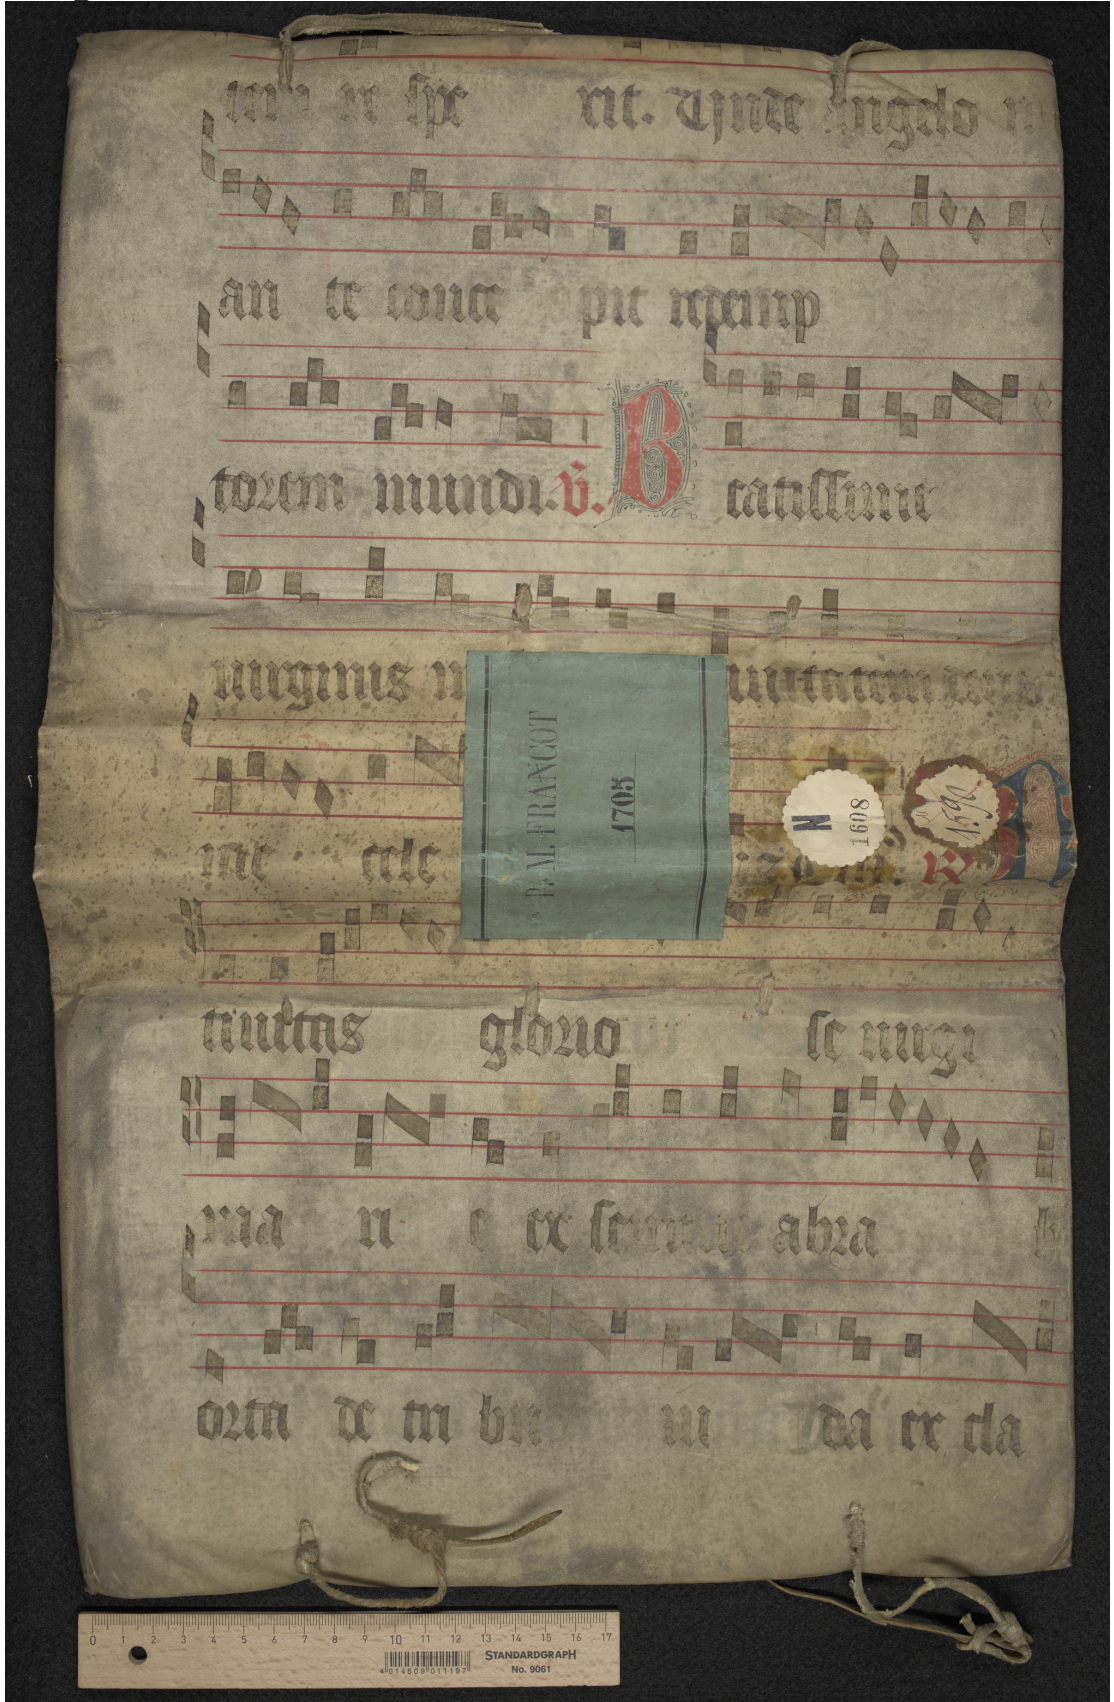 rit. Unde angelo
an te conce pit redemp
torem mundi. v. B eatissime
virginis
me cele
P. M. FRANCOT
1705
N
1608
1592
tivitas glorio se virgi
ma ri e ex abra
orta de tri bu iu da ex cla
0 1 2 3 4 5 6 7 8 9 10 11 12 13 14 15 16 17
4 014509 011197
STANDARDGRAPH
No. 9061